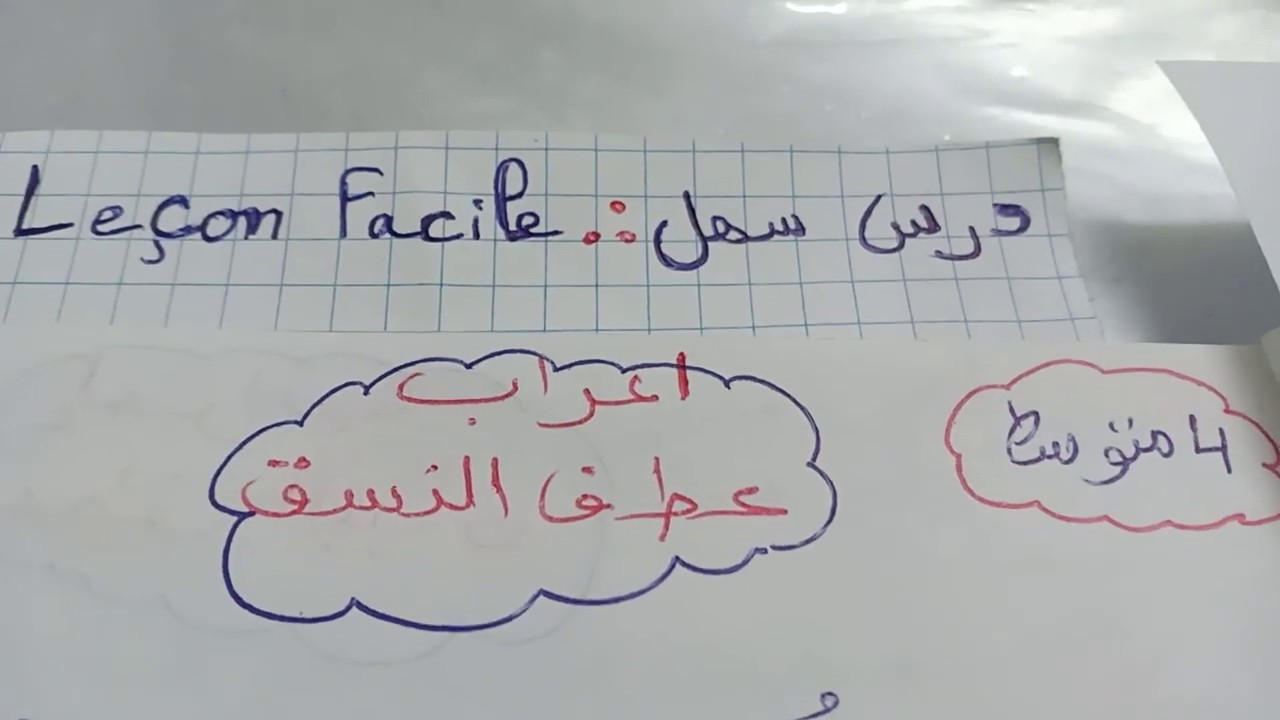 Leçon Facile : درس سهل
اعراب
عطف النسق
4 متوسط